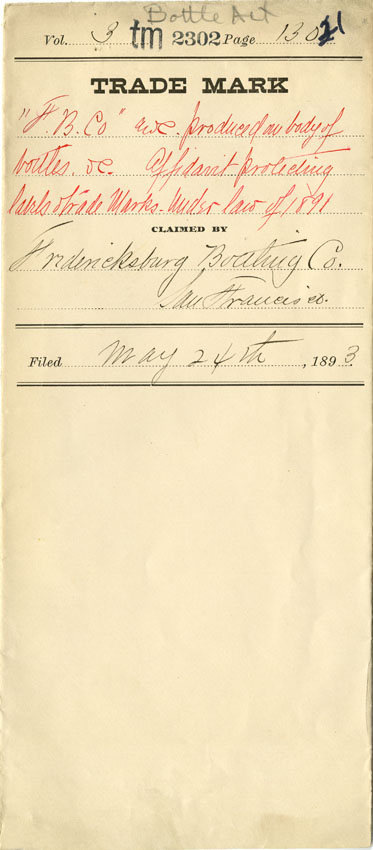 Bottle Act
Vol. 3 tm 2302 Page 130
TRADE MARK
"F.B.Co" &c. produced on body of
bottles. &c. Affidavit protecting
labels & trade Marks. Under law of 1891
CLAIMED BY
Fredericksburg Bottling Co.
San Francisco.
Filed May 24th, 1893